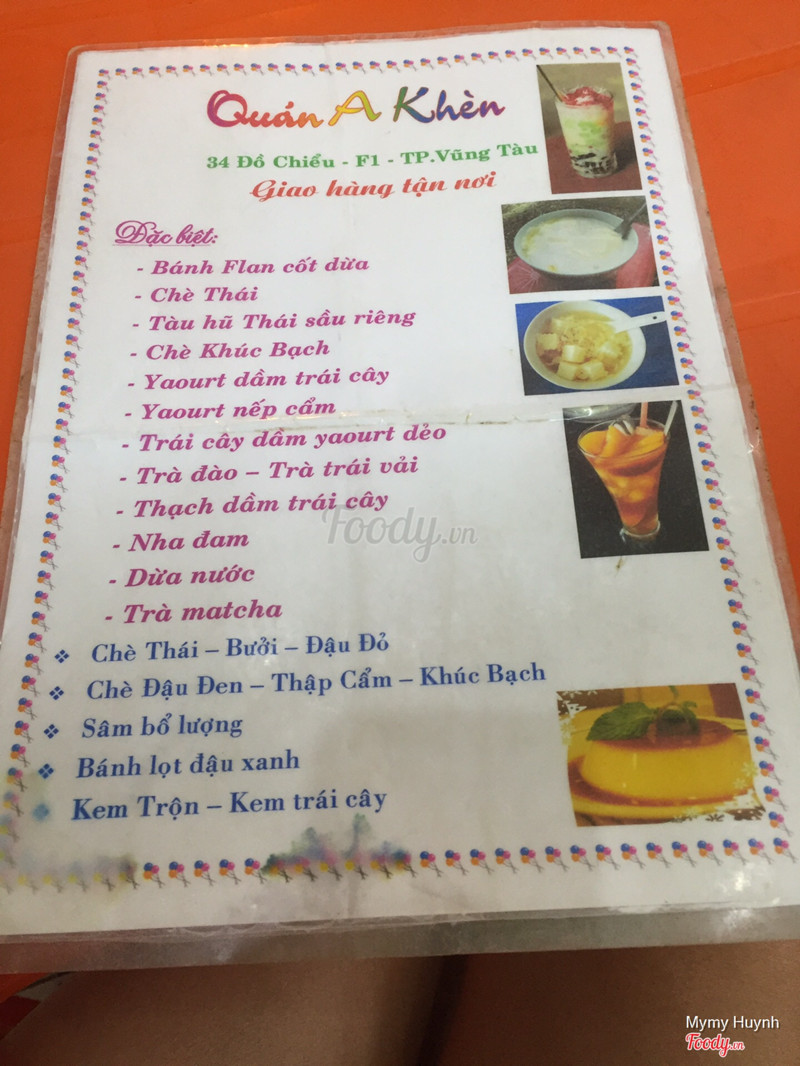 Quán A Khèn
34 Đồ Chiểu - F1 - TP.Vũng Tàu
Giao hàng tận nơi
Đặc biệt:
- Bánh Flan cốt dừa
- Chè Thái
- Tàu hũ Thái sầu riêng
- Chè Khúc Bạch
- Yaourt dầm trái cây
- Yaourt nếp cẩm
- Trái cây dầm yaourt dẻo
- Trà đào – Trà trái vải
- Thạch dầm trái cây
- Nha đam
- Dừa nước
- Trà matcha
❖ Chè Thái – Bưởi – Đậu Đỏ
❖ Chè Đậu Đen – Thập Cẩm – Khúc Bạch
❖ Sâm bổ lượng
❖ Bánh lọt đậu xanh
❖ Kem Trộn – Kem trái cây
Foody.vn
Mymy Huynh
Foody.vn